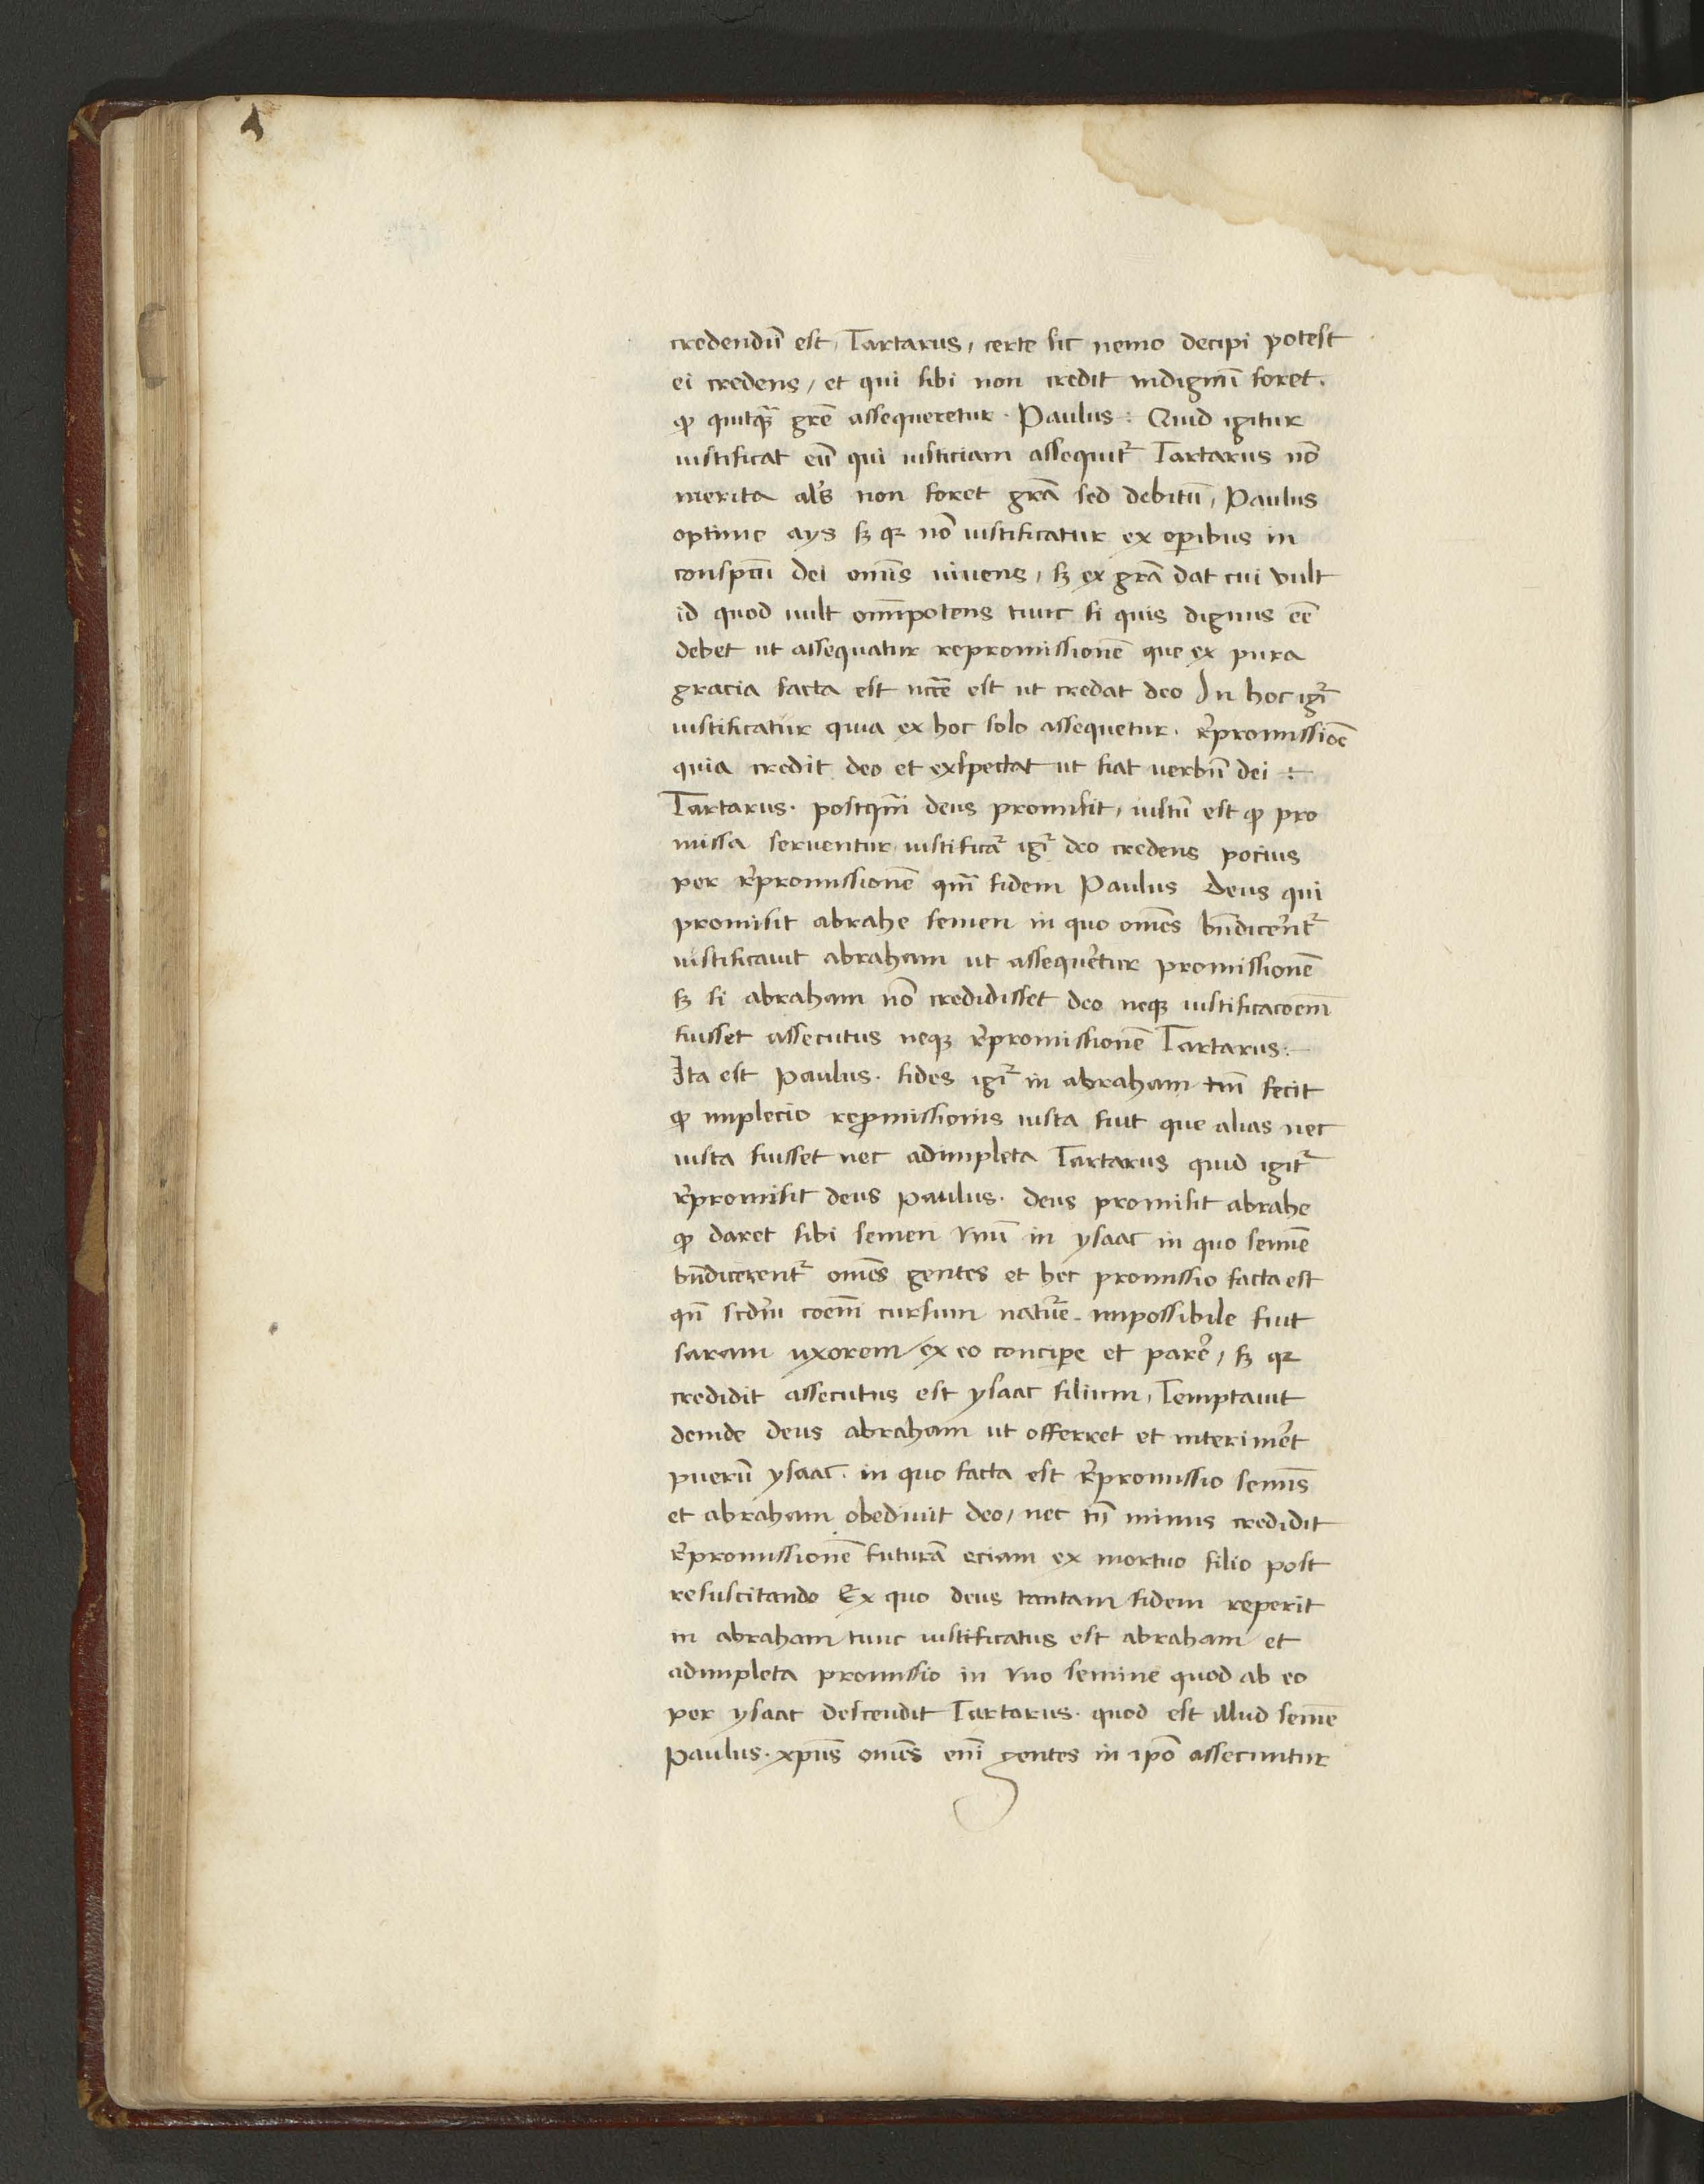 credendū est, Tartarus, certe sic nemo decipi potest
ei credens, et qui sibi non credit indignū foret.
ꝙ quitꝗ̃ grē assequeretur. Paulus: Quid igitur
iustificat eū qui iusticiam assequit᷑ Tartarus nō
merita al's non foret grā sed debitū, Paulus
optime ays sꝫ qꝛ nō iustificatur ex oꝑibus in
conspctū dei omīs uiuens, sꝫ ex grā dat cui vult
id quod uult omīpotens tunc si quis dignus eē
debet ut assequatur repromissionē que ex pura
gracia facta est nccē est ut credat deo In hoc igr̄
iustificatur quia ex hoc solo assequetur. r̄promissiōē
quia credit deo et exspectat ut fiat uerbū dei :
Tartarus. postqm̄ deus promisit, iustū est ꝙ pro
missa seruentur iustificat᷑ igr̄ deo credens pocius
per r̄promissionē qm̄ fidem Paulus Deus qui
promisit abrahe semen in quo omēs bn̄dicer̄nt᷑
iustificauit abraham ut assequer̄tur promissionē
sꝫ si abraham nō credidisset deo neqꝫ iustificacoem̄
fuisset assecutus neqꝫ r̄promissionē Tartarus:
Ita est Paulus. fides igr̄ in abraham tm̄ fecit
ꝙ implecio reꝓmissionis iusta fuit que alias nec
iusta fuisset nec adimpleta Tartarus quid igit᷑
r̄promisit deus Paulus. deus promisit abrahe
ꝙ daret sibi semen vnū in ysaac in quo semīe
bn̄dicerent᷑ omēs gentes et hec promissio facta est
qn̄ scdm̄ coem̄ cursum natur̄e impossibile fuit
saram uxorem ex eo conciꝑe et parer̄, sꝫ qꝛ
credidit assecutus est ysaac filium, Temptauit
deinde deus abraham ut offerret et interimer̄t
puerū ysaac. in quo facta est r̄promissio semīs
et abraham obediuit deo, nec tn̄ minus credidit
r̄promissionē futurā eciam ex mortuo filio post
resuscitando Ex quo deus tantam fidem reperit
in abraham tunc iustificatus est abraham et
adimpleta promissio in vno semine quod ab eo
per ysaac descendit Tartarus. quod est illud semē
Paulus. xpūs omēs enī gentes in ipō assecuntur